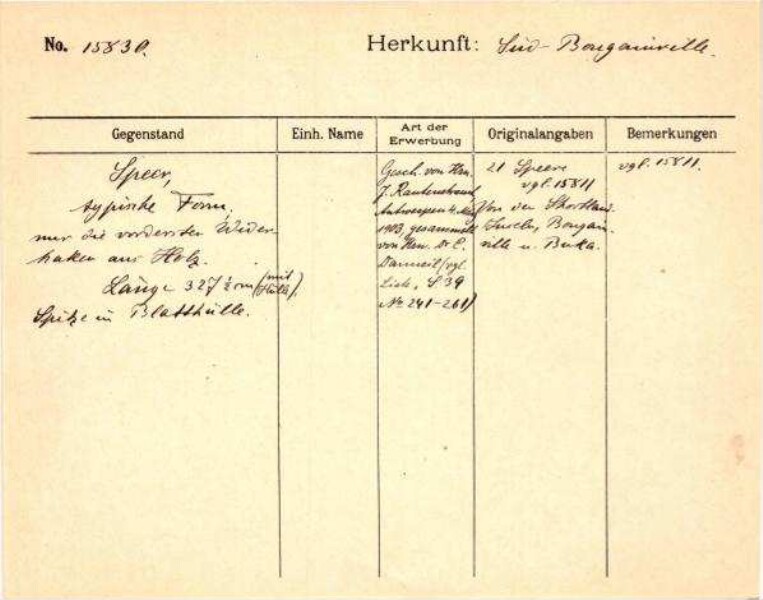 No. 15830.
Herkunft: Süd-Bougainville.
Gegenstand
Einh. Name
Art der Erwerbung
Originalangaben
Bemerkungen
Speer,
typische Form,
nur die vordersten Wider-
haken aus Holz.
Länge 327 cm (mit
Hülle).
Spitze in Blatthülle.
Gesch. von Hrn.
J. Rautenstrauch
Antwerpen 4. Mai
1903, gesammelt
von Hrn. Dr. C.
Danneil (vgl.
Liste, S. 39
No 241-261)
21 Speere
vgl. 15811
Von den Shortland-
Inseln, Bougain-
ville u. Buka.
vgl. 15811.